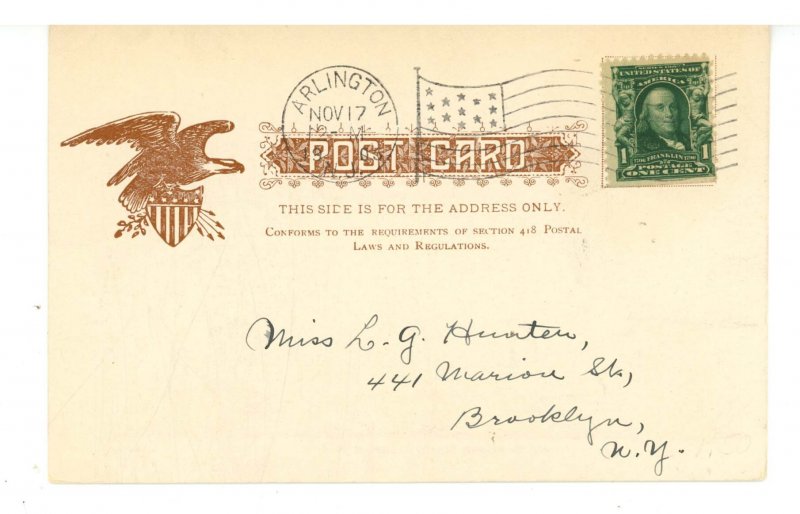 ARLINGTON
NOV 17
N.J.
SERIES 1902
UNITED STATES OF
AMERICA
1 FRANKLIN 1
POSTAGE
ONE CENT
POST CARD
THIS SIDE IS FOR THE ADDRESS ONLY.
CONFORMS TO THE REQUIREMENTS OF SECTION 418 POSTAL
LAWS AND REGULATIONS.
Miss L. G. Hunten,
441 Marion St.,
Brooklyn,
N.Y.